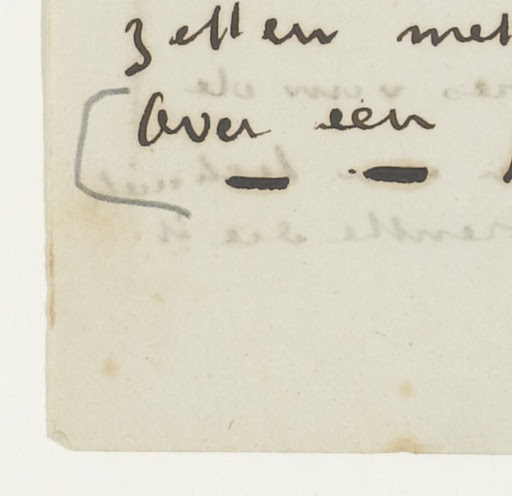 zetten met
Over een
— —